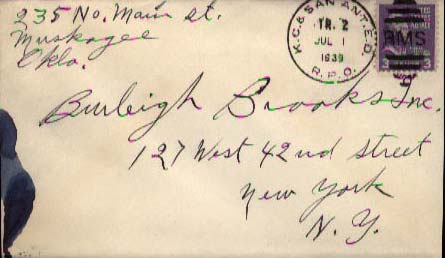 235 No. Main st.
Muskogee
Okla.
K.C. & SAN ANT. E.D.
TR. 2
JUL 1
1939
R.P.O.
RMS
3 3
Burleigh Brooks Inc
127 West 42nd street
New York
N. Y.